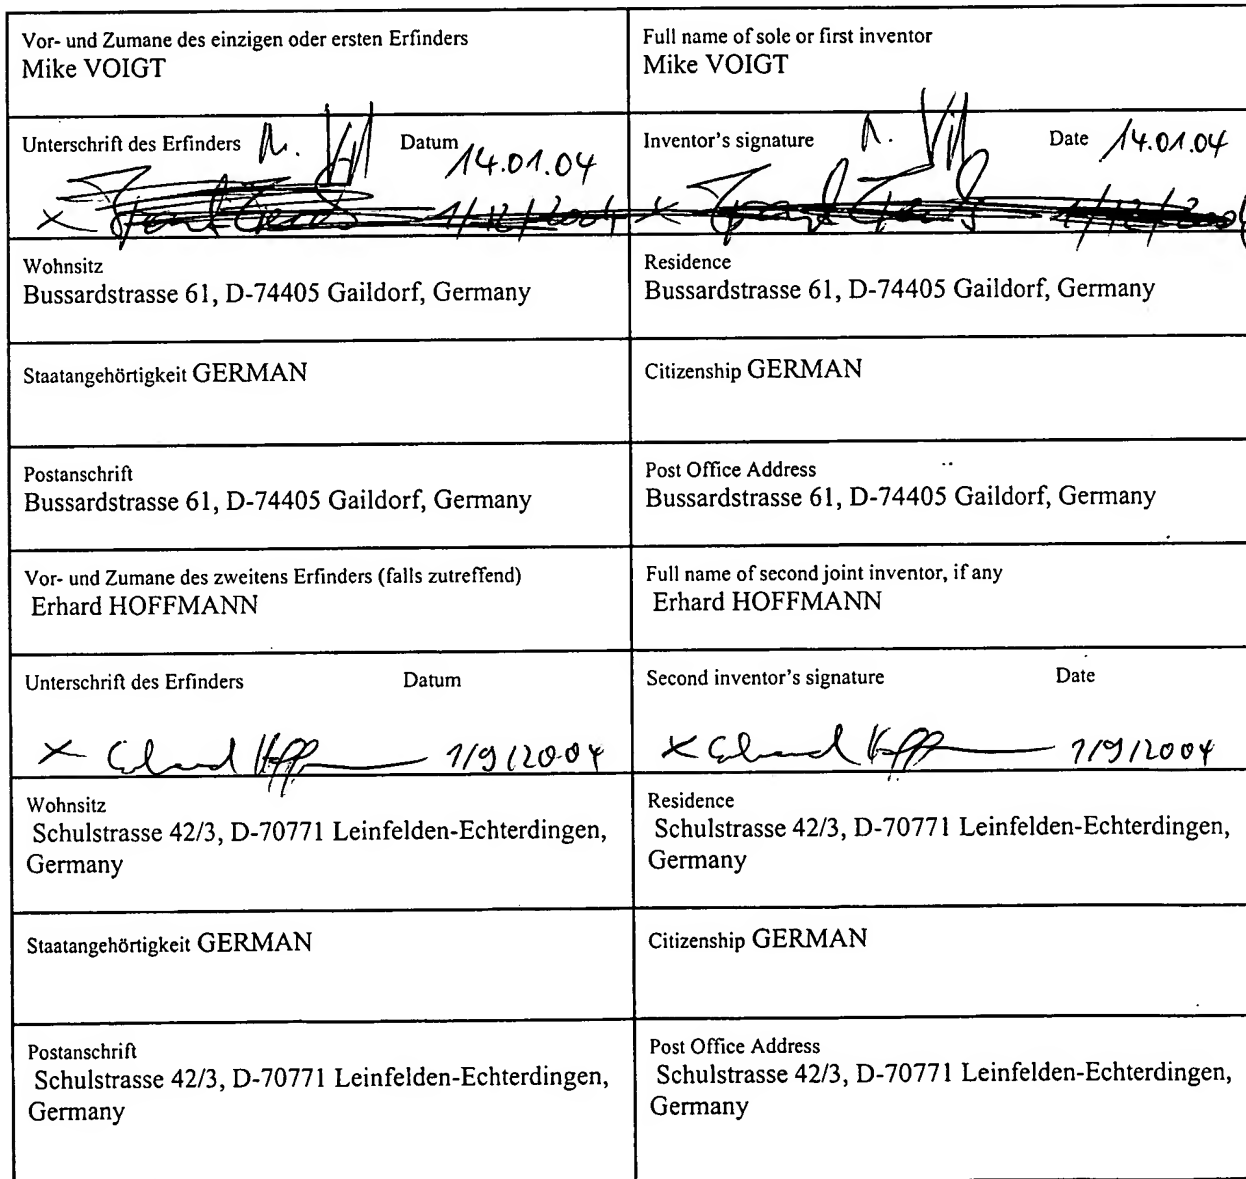 Vor- und Zumane des einzigen oder ersten Erfinders
Mike VOIGT
Full name of sole or first inventor
Mike VOIGT
Unterschrift des Erfinders
Datum 14.01.04
Inventor's signature
Date 14.01.04
Wohnsitz
Bussardstrasse 61, D-74405 Gaildorf, Germany
Residence
Bussardstrasse 61, D-74405 Gaildorf, Germany
Staatangehörtigkeit GERMAN
Citizenship GERMAN
Postanschrift
Bussardstrasse 61, D-74405 Gaildorf, Germany
Post Office Address
Bussardstrasse 61, D-74405 Gaildorf, Germany
Vor- und Zumane des zweitens Erfinders (falls zutreffend)
Erhard HOFFMANN
Full name of second joint inventor, if any
Erhard HOFFMANN
Unterschrift des Erfinders Datum
x 1/9/2004
Second inventor's signature Date
x 1/9/2004
Wohnsitz
Schulstrasse 42/3, D-70771 Leinfelden-Echterdingen,
Germany
Residence
Schulstrasse 42/3, D-70771 Leinfelden-Echterdingen,
Germany
Staatangehörtigkeit GERMAN
Citizenship GERMAN
Postanschrift
Schulstrasse 42/3, D-70771 Leinfelden-Echterdingen,
Germany
Post Office Address
Schulstrasse 42/3, D-70771 Leinfelden-Echterdingen,
Germany